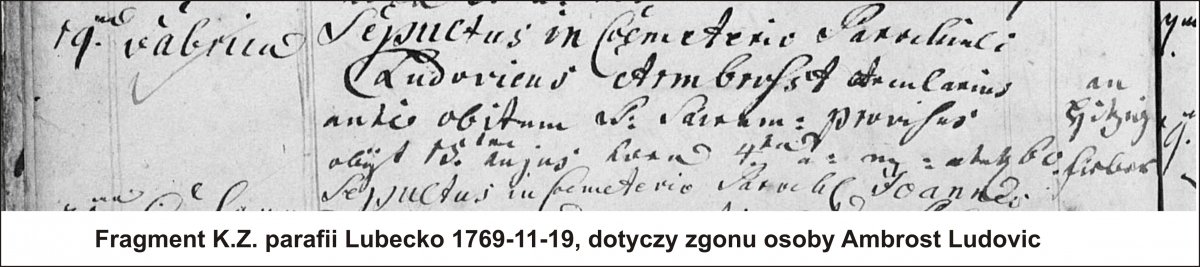 19. na Fabrica Sepultus in Coemeterio Parochiali
Ludovicus Armbrosst Arcularius
antie obitum S: Sacram: provisus
obijt 18. hujus hora 4.ta a: m:
an
Hitzig
fieber
Sepultus in Coemeterio Paroch: Joannes
Fragment K.Z. parafii Lubecko 1769-11-19, dotyczy zgonu osoby Ambrost Ludovic